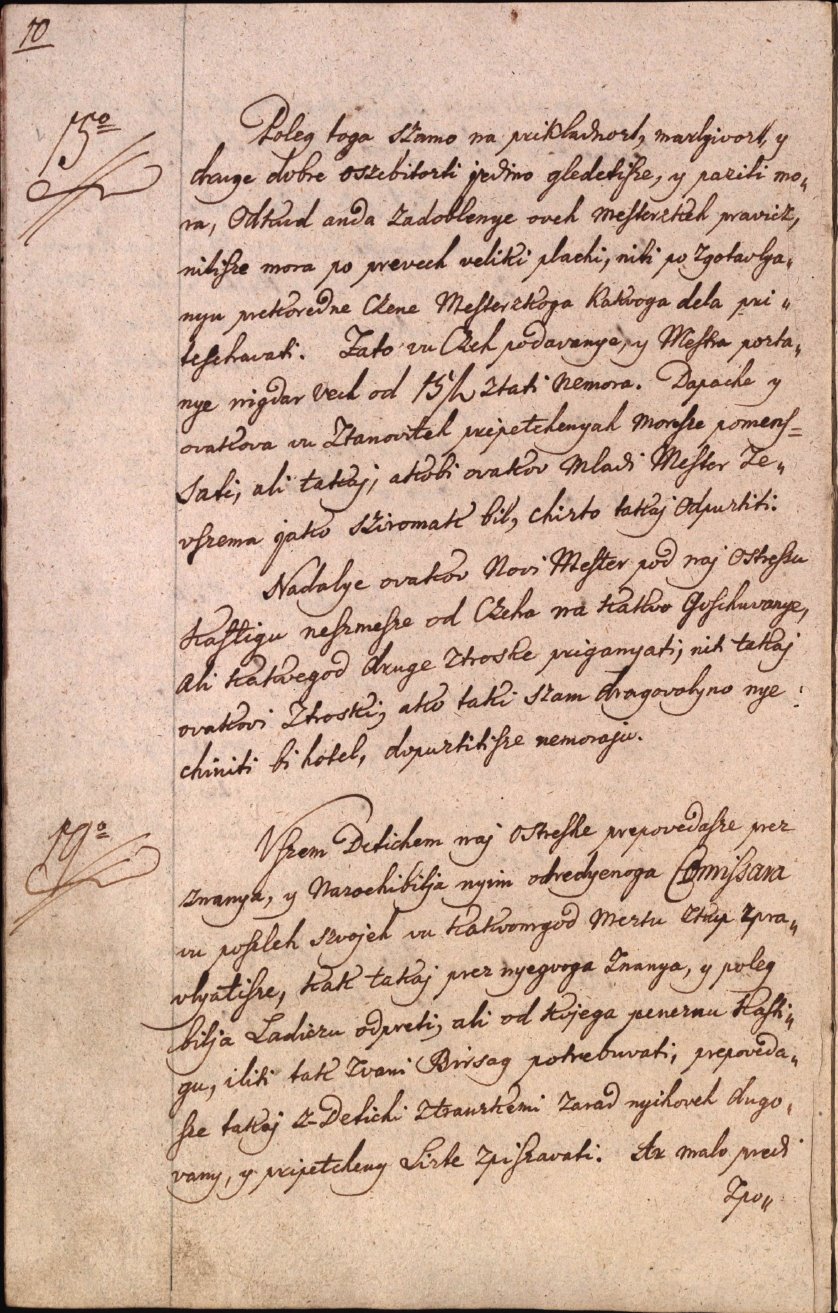 10
15º
Poleg toga szamo na prikladnozt, marlyivozt, y
druge dobre oszebitozti jedino gledetisze, y paziti mo„
ra, Odkud anda zadoblenye oveh Mesterzkeh pravicz,
nitisze mora po prevech veliki plachi, niti po zgotavlya„
nyu prekoredne Czene Mesterzkoga kakvoga dela pri„
teschavati. Zato vu Czeh podavanye, y Mestra pozta„
nye nigdar vech od 15 f ztati nemora. Dapache y
ovakova vu Ztanoviteh pripetchenyah moresze pomens=
sati, ali takaj, akobi ovakov mladi Mester Ze„
vszema jako sziromak bil, chizto takaj odpuztiti.
Nadalye ovakov Novi Mester pod naj ostressu
kastigu neszmesze od Czeha na kakvo Goschuvanye,
ali kakvegod druge ztroske priganyati, niti takaj
ovakovi Ztroski, ako taki szam dragovolyno nye
chiniti bi hotel, dopuztitisze nemoraju.
19º
Vszem Detichem naj ostreshe prepovedasze prez
znanya, y Narochibilja nyim odredyenoga Comissara
vu poszleh szvojeh vu kakvomgod Meztu zkup zpra„
vlyatisze, kak takaj prez nyegvoga Znanya, y poleg
bilja Ladiczu odpreti, ali od kojega peneznu kasti„
gu, iliti tak Zvani Birsag potrebuvati, prepoveda„
sze takaj z-Detichi ztranzkemi zarad nyihoveh dugo„
vany, y pripetcheny Lizte zpiszavati. Ar malo predi
Zpo„